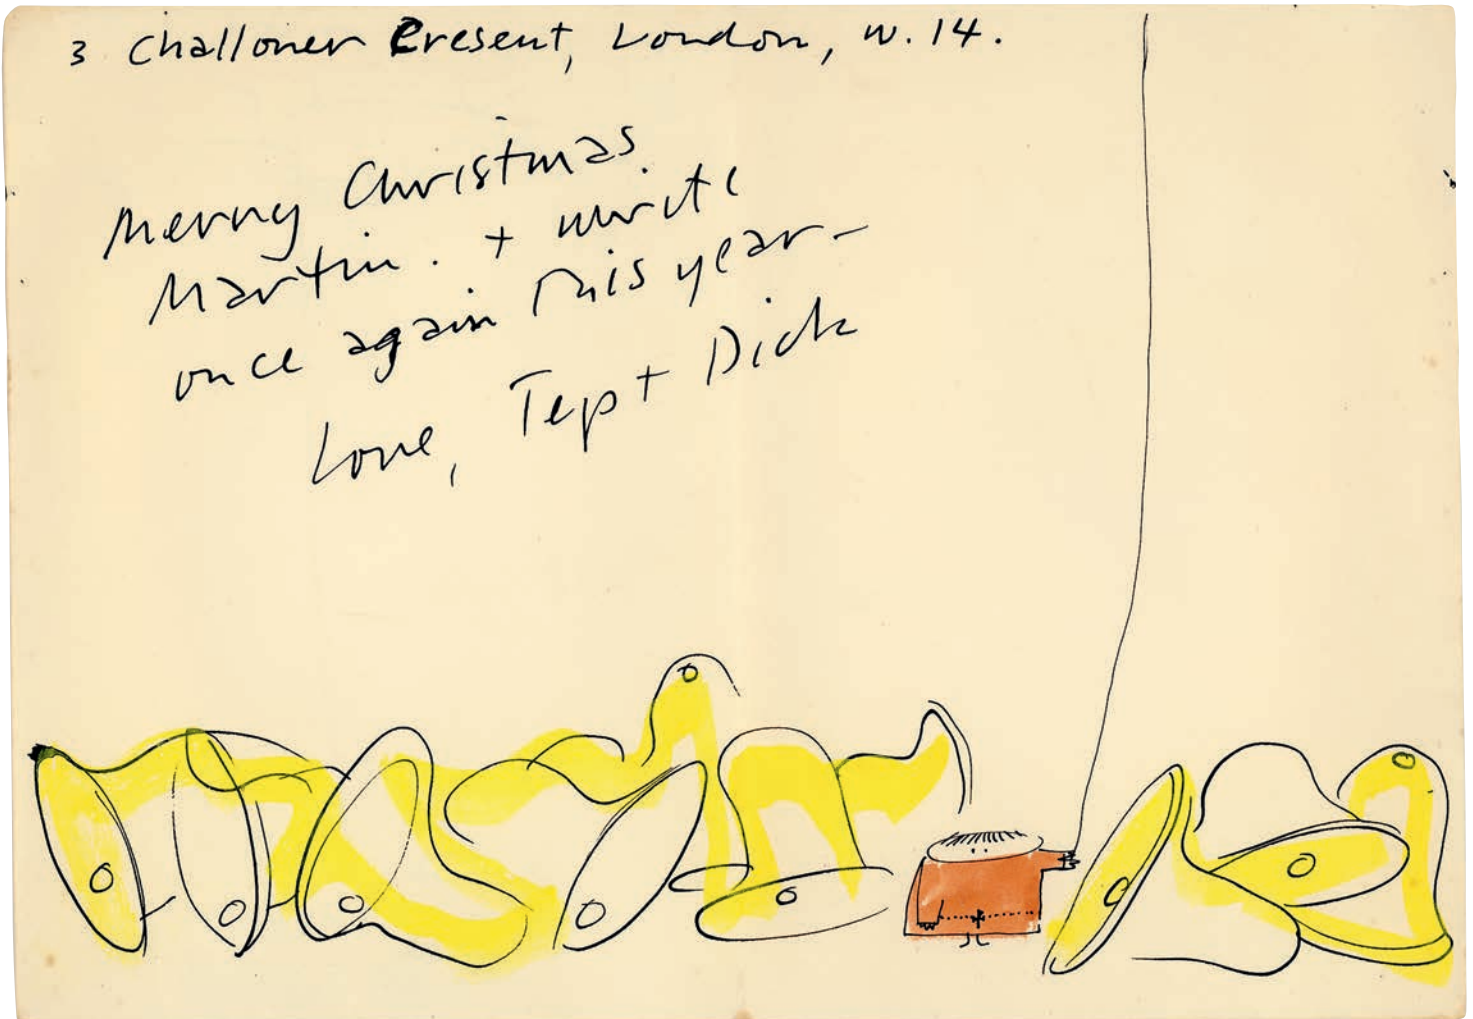 3 Challoner Cresent, London, W.14.
Merry Christmas
Martin. + write
once again this year-
Love, Tep + Dick